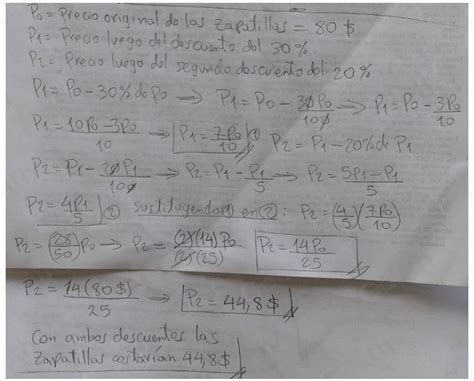 P0 = Precio original de las zapatillas = 80 $
P1 = Precio luego del descuento del 30 %
P2 = Precio luego del segundo descuento del 20 %
P1 = P0 - 30% de P0 → P1 = P0 - 30P0/100 → P1 = P0 - 3P0/10
P1 = 10P0 - 3P0/10 → P1 = 7P0/10 ① P2 = P1 - 20% de P1
P2 = P1 - 20P1/100 → P2 = P1 - P1/5 → P2 = 5P1 - P1/5
P2 = 4P1/5 ② sustituyendo ① en ②: P2 = (4/5)(7P0/10)
P2 = (28/50)P0 → P2 = (2)(14)P0/(2)(25) P2 = 14P0/25
P2 = 14(80$)/25 → P2 = 44,8$
Con ambos descuentos las
zapatillas costarían 44,8$